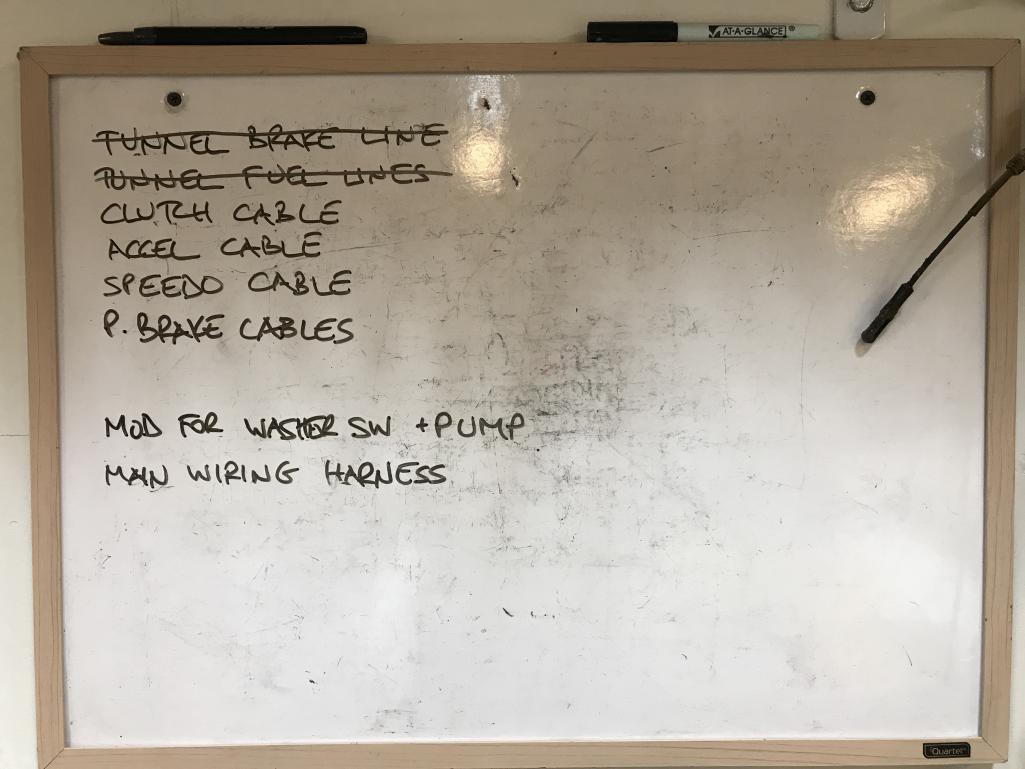 AT-A-GLANCE®
TUNNEL BRAKE LINE
TUNNEL FUEL LINES
CLUTCH CABLE
ACCEL CABLE
SPEEDO CABLE
P. BRAKE CABLES
MOD FOR WASHER SW + PUMP
MAIN WIRING HARNESS
Quartet